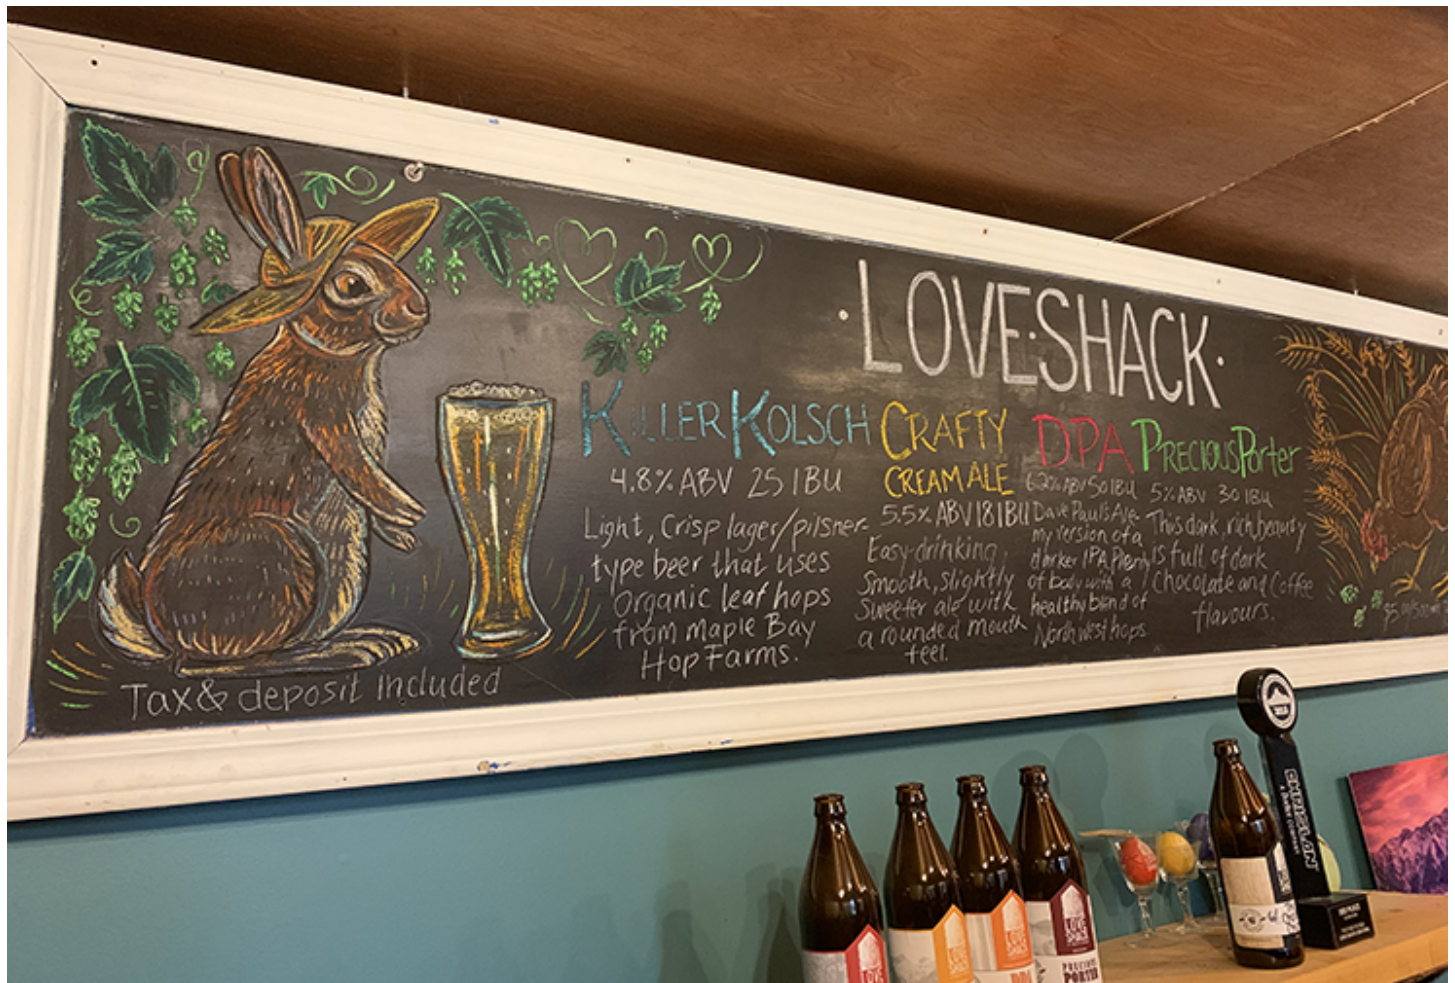 ·LOVE·SHACK·
KILLER KOLSCH
4.8% ABV 25 IBU
Light, Crisp lager/pilsner
type beer that uses
Organic leaf hops
from Maple Bay
Hop Farms.
CRAFTY
CREAM ALE
5.5% ABV 18 IBU
Easy-drinking,
Smooth, slightly
Sweeter ale with
a rounded mouth
feel.
DPA
6.20% ABV 50 IBU
Dave Paul's Ale.
my version of a
darker IPA. Plenty
of body with a
healthy blend of
North west hops.
PRECIOUS Porter
5% ABV 30 IBU
This dark, rich, beauty
IS full of dark
Chocolate and Coffee
flavours.
Tax & deposit Included
LOVE
LOVE
SHACK
LOVE
SHACK
DPA
LOVE
SHACK
PRECIOUS
PORTER